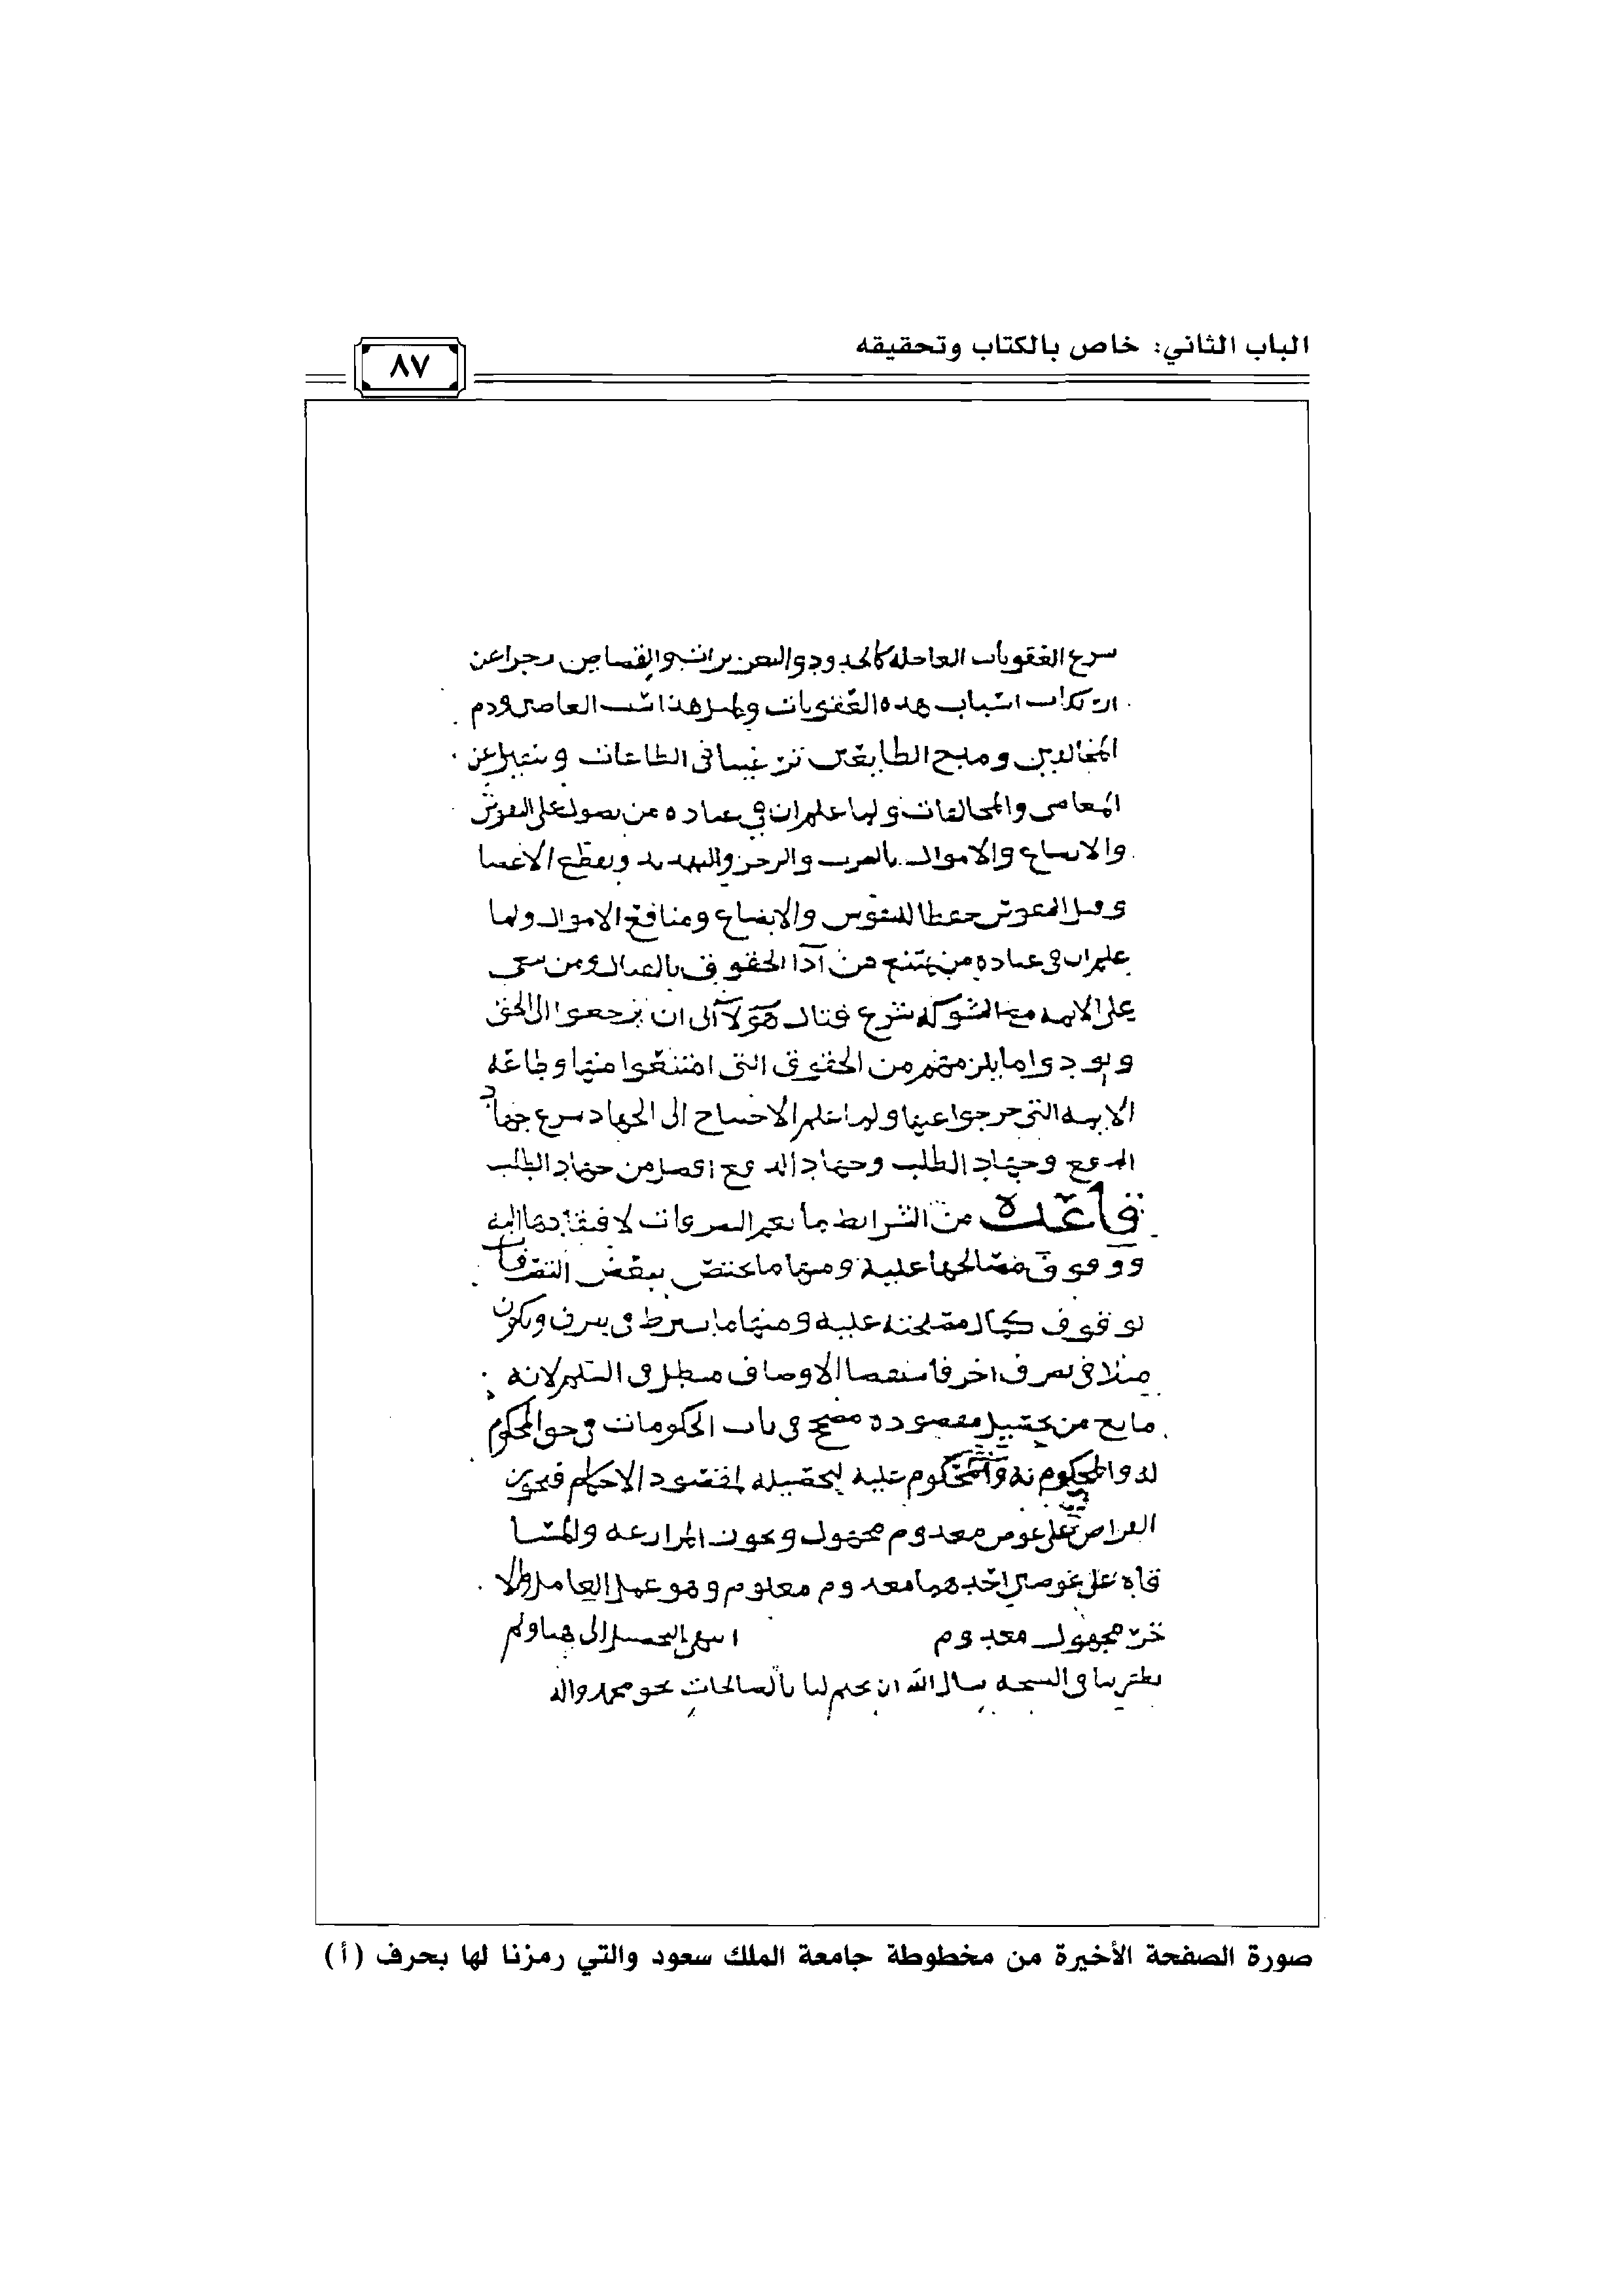 الباب الثاني: خاص بالكتاب وتحقيقه
٨٧
شرع العقوبات العاجلة كالحدود والتعزيرات والقصاص زجرا عن
ارتكاب اسباب هذه العقوبات ولمثل هذا العاصي وذم
المخالفين ومدح الطايعين ترغيبا في الطاعات و عن
المعاصي والمخالفات ولما علم ان في عباده من يصول على النفوس
والابضاع والاموال بالضرب والزجر والتهديد وبقطع الاعضا
وقتل النفوس حفظا للنفوس والابضاع ومنافع الاموال ولما
علم ان في عباده من يمتنع من ادا الحقوق بالقتال ومن
على الايمه مع الشوكة شرع قتال هؤلآ الى ان يرجعوا الى الحق
ويودوا ما يلزمهم من الحقوق التي امتنعوا منها وطاعة
الايمه التي خرجوا عنها ولما علم الاحتياج الى الجهاد شرع جهاد
الدفع وجهاد الطلب وجهاد الدفع افضل من جهاد الطلب
قاعدة من الشرايط ما يعم التصرفات لافتقادها اليه
ووقوف مصالحها عليه ومنها ما يختص ببعض التصرفات
لوقوف كمال مصلحته عليه ومنها ما يشترط في تصرف ويكون
مبطلا في تصرف اخر فاستقصا الاوصاف مبطل في السلم لانه
مانع من تحصيل مقصوده مصحح في باب الحكومات في حق المحكوم
له والمحكوم به والمحكوم عليه لتحصيله لمقصود الاحكام فيجوز
القراض على عوض معدوم مجهول وتجوز المزارعة والمسا
قاة على عوضين احدهما معدوم معلوم وهو عمل العامل والا
خر مجهول معدوم انتهى التحصيل الى هنا ولم
في النسخة نسال الله ان يختم لنا بالصالحات بحق محمد واله
صورة الصفحة الأخيرة من مخطوطة جامعة الملك سعود والتي رمزنا لها بحرف (أ)